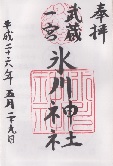 奉拝
武蔵
一宮
氷川神社
平成二十六年五月二十九日